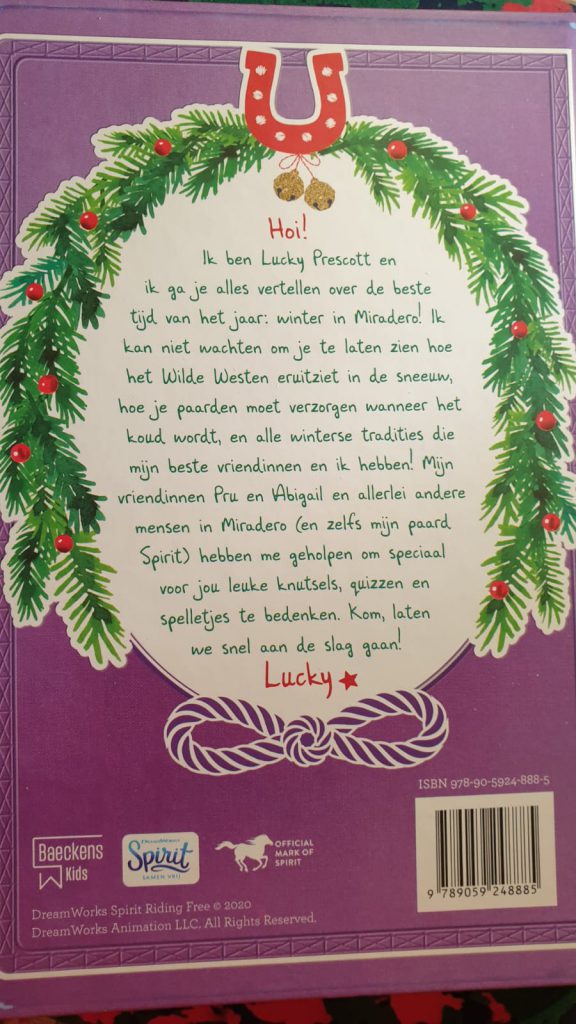 Hoi!
Ik ben Lucky Prescott en
ik ga je alles vertellen over de beste
tijd van het jaar: winter in Miradero! Ik
kan niet wachten om je te laten zien hoe
het Wilde Westen eruitziet in de sneeuw,
hoe je paarden moet verzorgen wanneer het
koud wordt, en alle winterse tradities die
mijn beste vriendinnen en ik hebben! Mijn
vriendinnen Pru en Abigail en allerlei andere
mensen in Miradero (en zelfs mijn paard
Spirit) hebben me geholpen om speciaal
voor jou leuke knutsels, quizzen en
spelletjes te bedenken. Kom, laten
we snel aan de slag gaan!
Lucky
ISBN 978-90-5924-888-5
9 789059 248885
Baeckens
Kids
DREAMWORKS
Spirit
SAMEN VRIJ
OFFICIAL
MARK OF
SPIRIT
DreamWorks Spirit Riding Free © 2020
DreamWorks Animation LLC. All Rights Reserved.